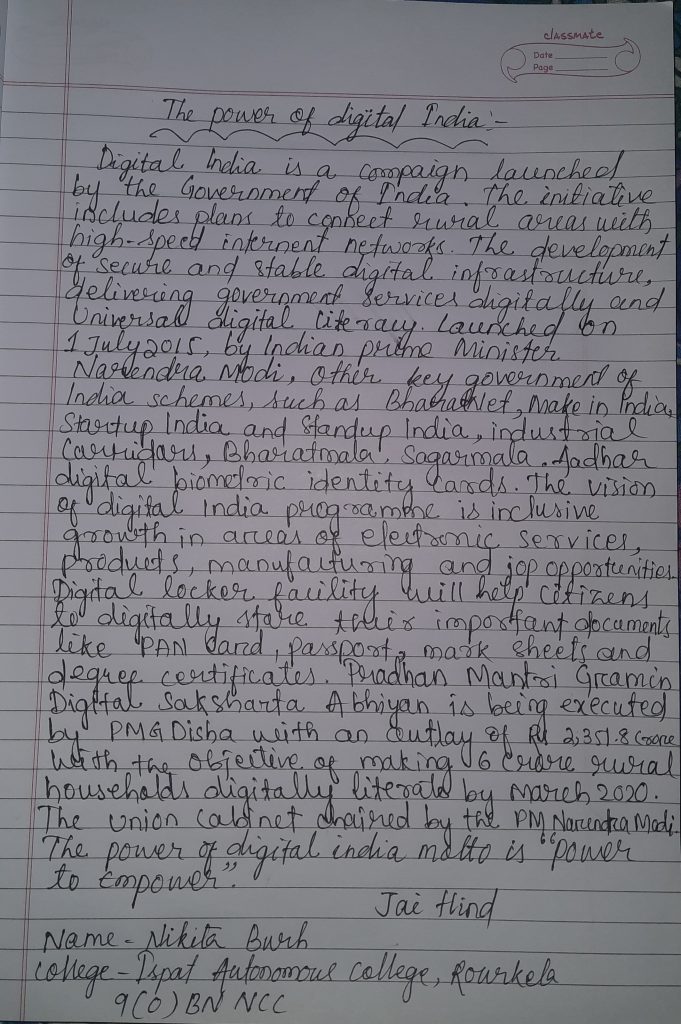 classmate
Date
Page
The power of digital India :-
Digital India is a compaign launched
by the Government of India. The initiative
includes plans to connect rural areas with
high-speed internent networks. The development
of secure and stable digital infrastructure,
delivering government services digitally and
Universal digital literacy. Launched on
1 July 2015, by Indian prime Minister
Narendra Modi, Other key government of
India schemes, such as BharatNet, Make in India,
Startup India and Standup India, industrial
Carridars, Bharatmala, Sagarmala. Aadhar
digital biometric identity cards. The vision
of digital India programme is inclusive
growth in areas of electronic services,
products, manufacturing and jop opportunities.
Digital locker facility will help citizens
to digitally store their important documents
like PAN Card, passport, mark sheets and
degree certificates. Pradhan Mantri Gramin
Digital Saksharta Abhiyan is being executed
by PMG Disha with an outlay of Rs 2,351.8 Crore
with the objective of making 6 crore rural
households digitally literate by March 2020.
The Union cabinet chaired by the PM Narendra Modi.
The power of digital india motto is "power
to Empower".
Jai Hind
Name - Nikita Burh
College - Ispat Autonomous College, Rourkela
9(O) BN NCC